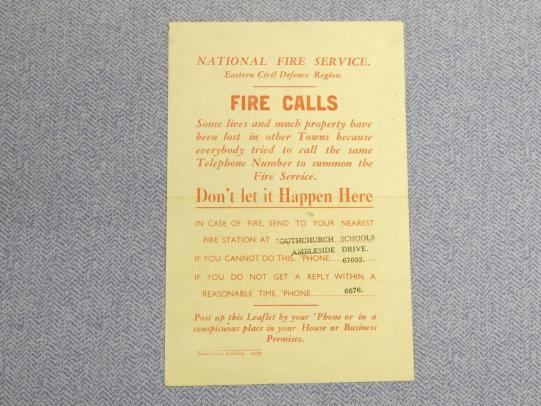 NATIONAL FIRE SERVICE.
Eastern Civil Defence Region.
FIRE CALLS
Some lives and much property have
been lost in other Towns because
everybody tried to call the same
Telephone Number to summon the
Fire Service.
Don't let it Happen Here
IN CASE OF FIRE, SEND TO YOUR NEAREST
FIRE STATION AT SOUTHCHURCH SCHOOLS
AMBLESIDE DRIVE.
IF YOU CANNOT DO THIS, 'PHONE 67032.
IF YOU DO NOT GET A REPLY WITHIN A
REASONABLE TIME, 'PHONE 6676.
Post up this Leaflet by your 'Phone or in a
conspicuous place in your House or Business
Premises.